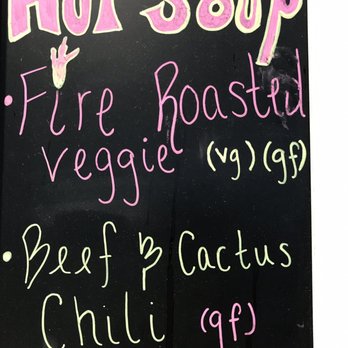 HOT Soup
• Fire Roasted
veggie (vg) (gf)
• Beef & Cactus
Chili (gf)